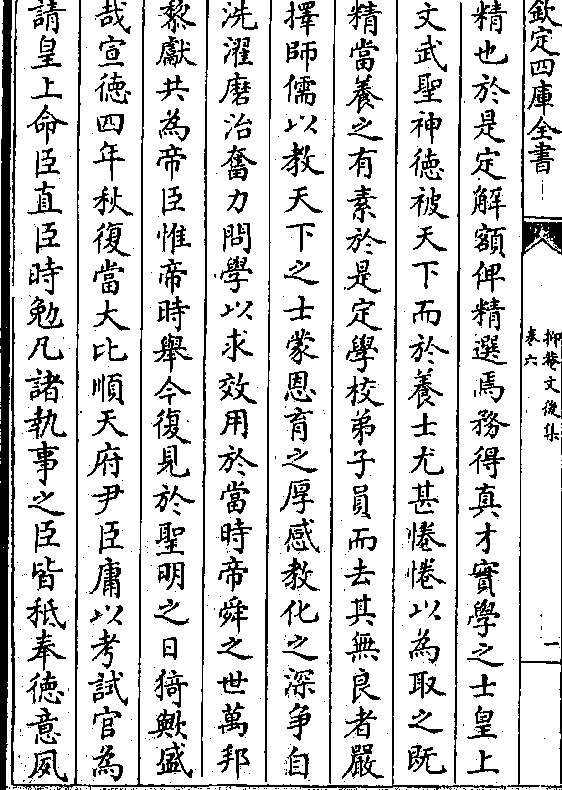 欽定四庫全書
抑菴文後集
卷六
一
精也於是定解額俾精選焉務得真才實學之士皇上
文武聖神徳被天下而於養士尤甚惓惓以為取之既
精當養之有素於是定學校弟子員而去其無良者嚴
擇師儒以教天下之士蒙恩育之厚感教化之深争自
洗濯磨治奮力問學以求效用於當時帝舜之世萬邦
黎獻共為帝臣惟帝時舉今復見於聖明之日猗歟盛
哉宣徳四年秋復當大比順天府尹臣庸以考試官為
請皇上命臣直臣時勉凡諸執事之臣皆秪奉徳意夙